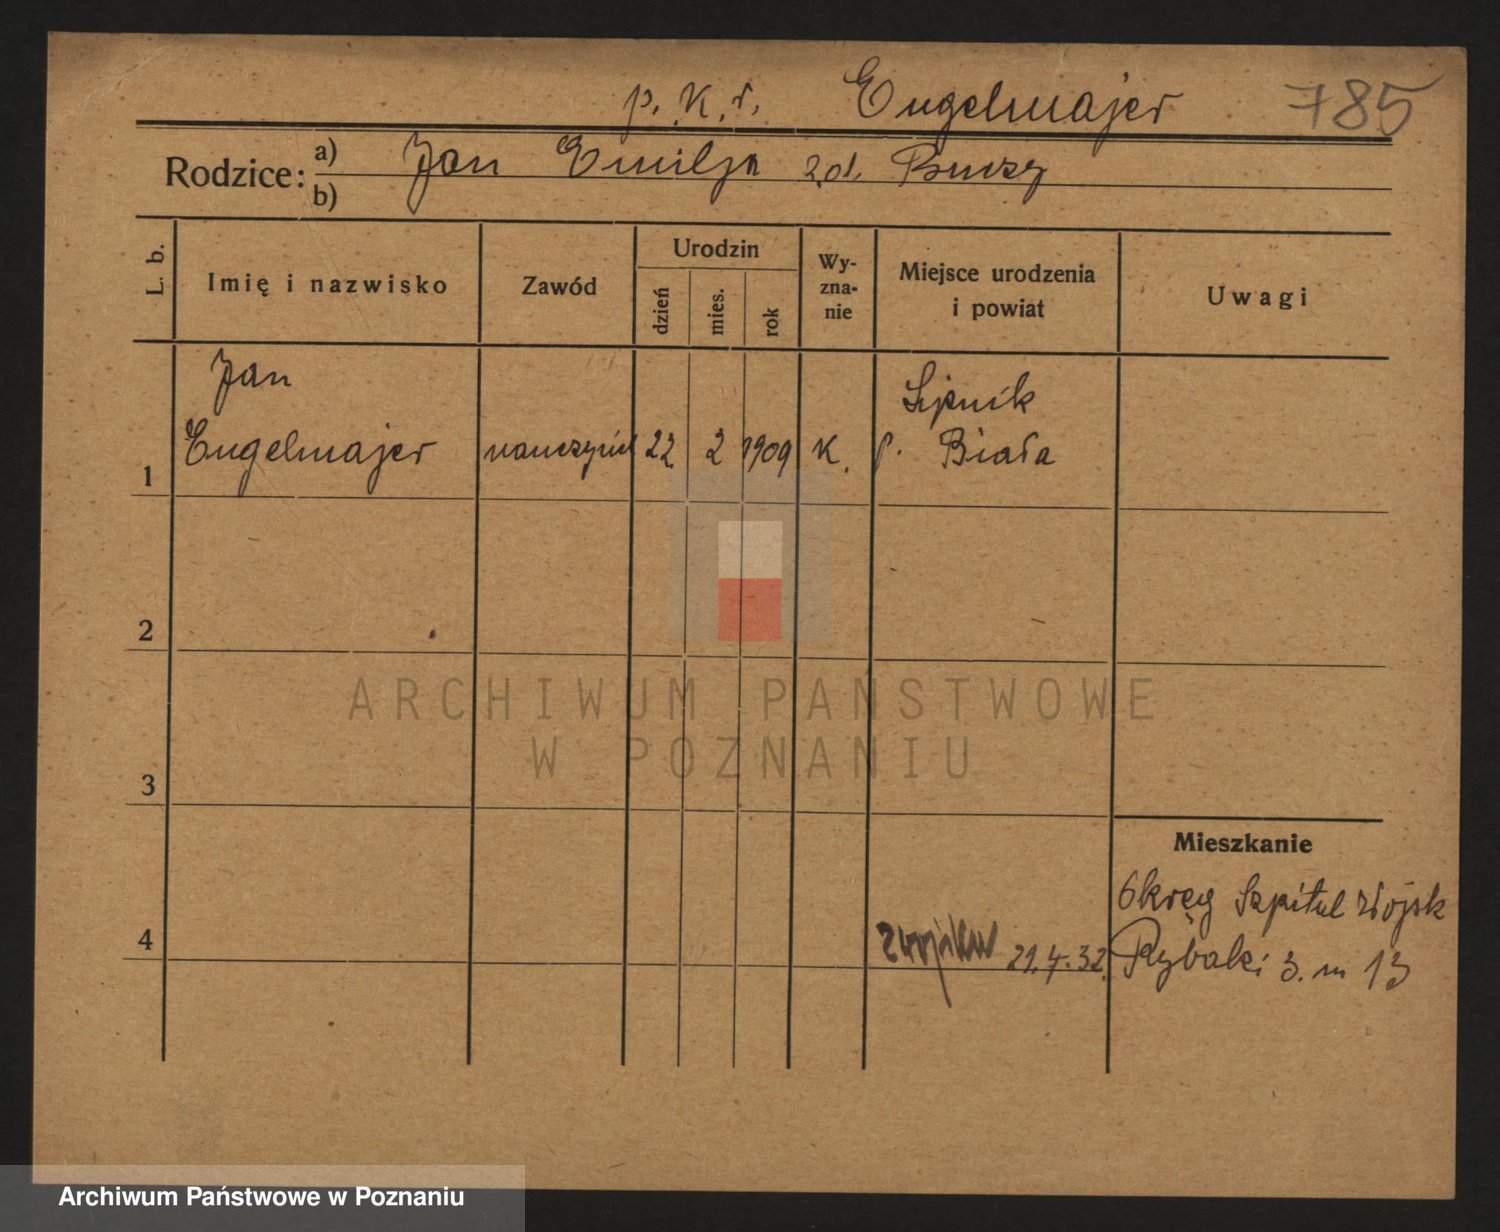 p. K. r. Engelmajer 785
Rodzice: a) Jan Emilja z d.
b)
L. b. Imię i nazwisko Zawód Urodzin dzień mies. rok Wy-zna-nie Miejsce urodzenia i powiat Uwagi
Jan Lipnik
1 Engelmajer nauczyciel 22 2 1909 K. p. Biała
2
3
ARCHIWUM PAŃSTWOWE
W POZNANIU
Mieszkanie
Okręg Szpital Wojsk
4 21.4.32. Rybaki 3. m 13
Archiwum Państwowe w Poznaniu